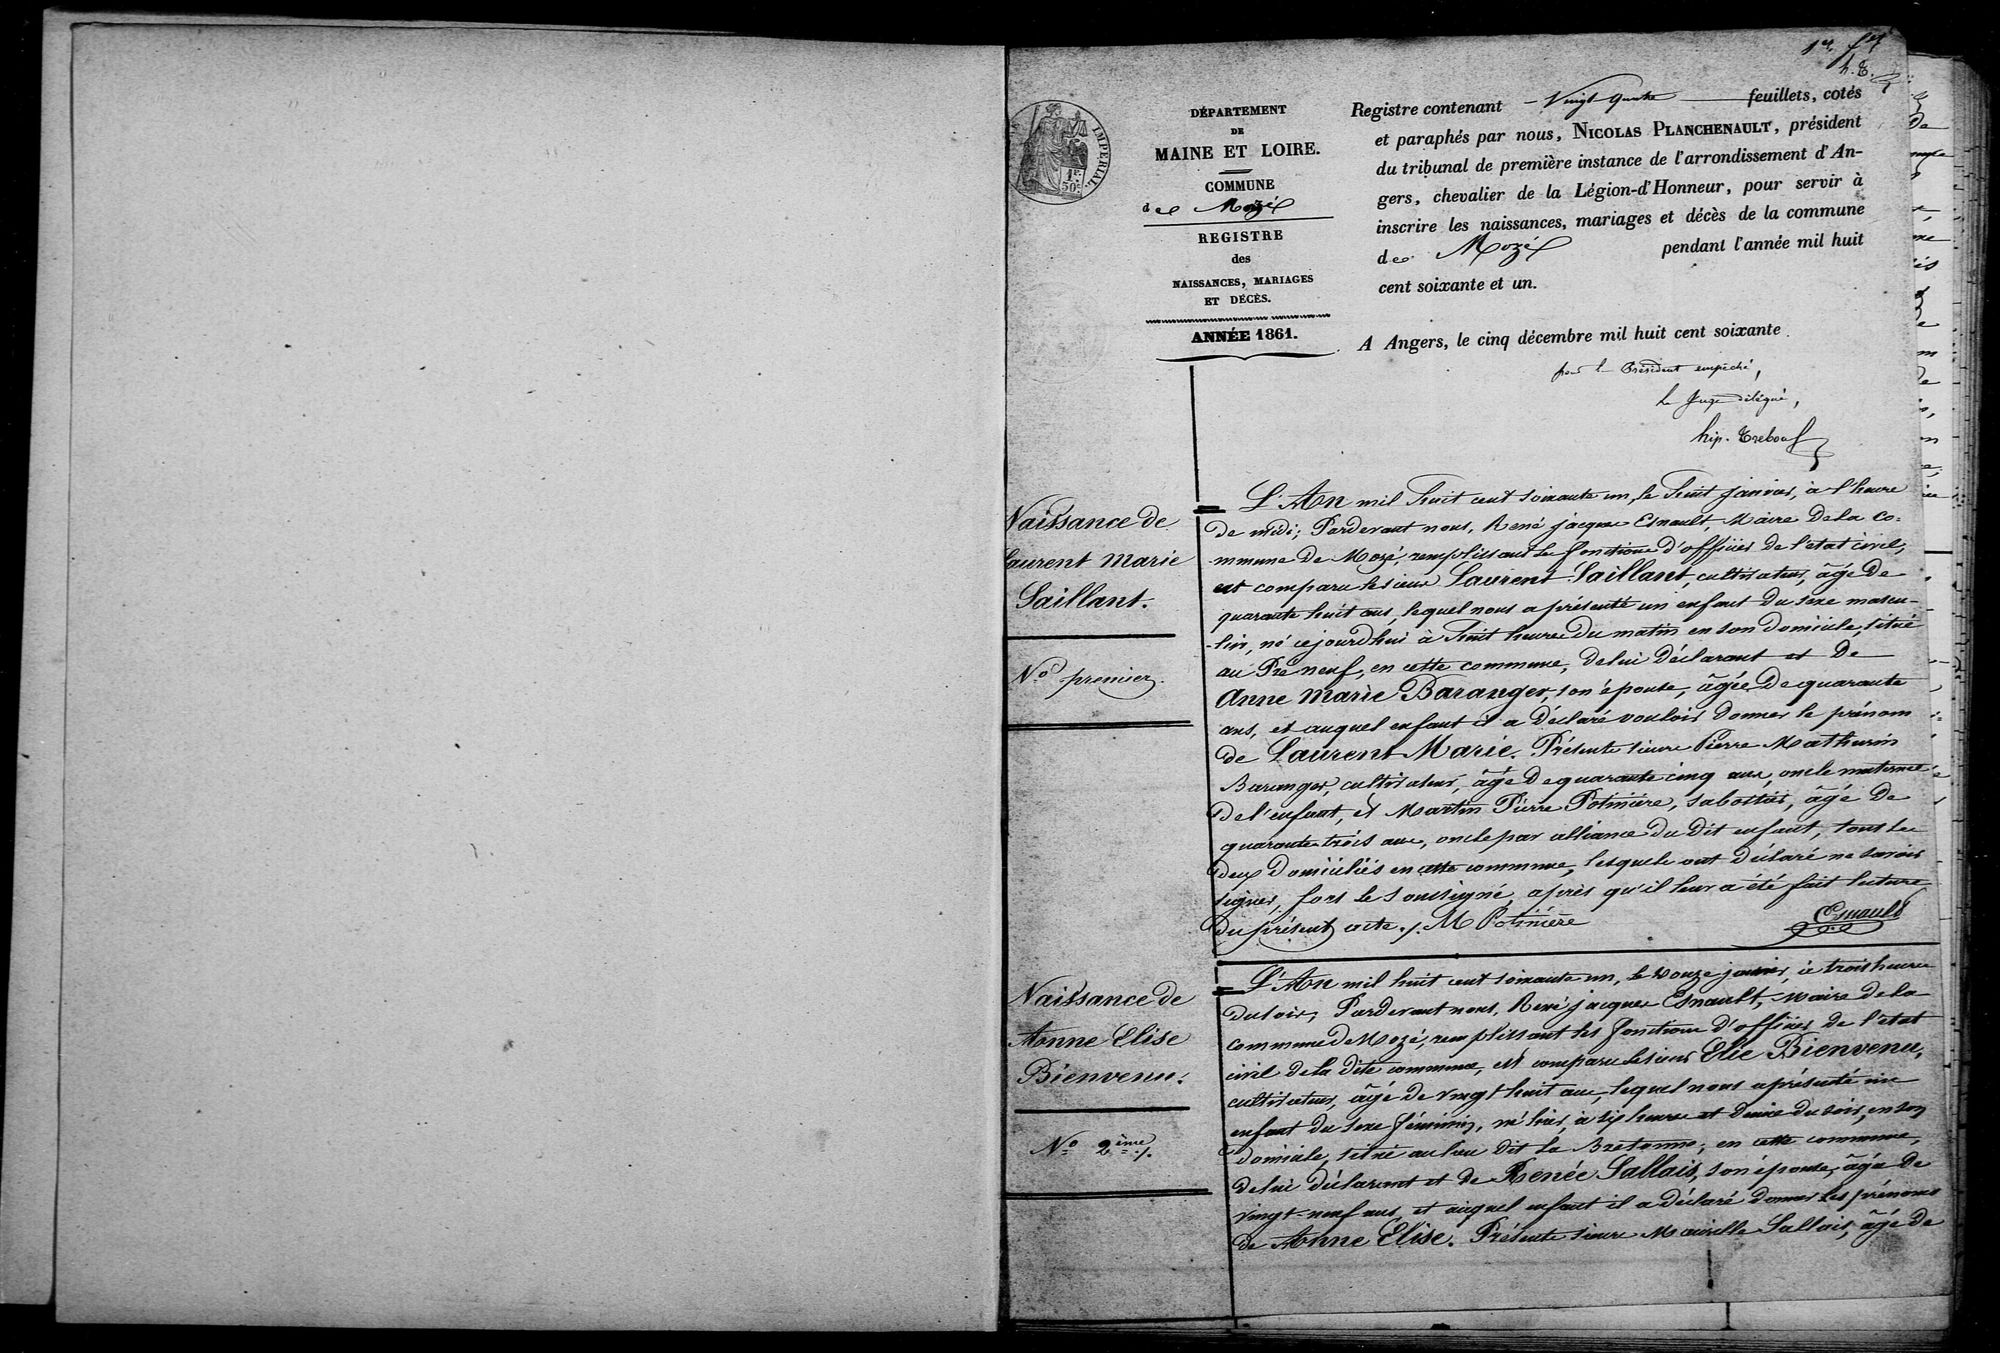 1er. ft
h.T.
DÉPARTEMENT
DE
MAINE ET LOIRE.
COMMUNE
de Mozé
REGISTRE
des
NAISSANCES, MARIAGES
ET DÉCÈS.
ANNÉE 1861.
IMPERIAL.
1F.
50c.
Registre contenant Vingt quatre feuillets, cotés
et paraphés par nous, NICOLAS PLANCHENAULT, président
du tribunal de première instance de l'arrondissement d'An-
gers, chevalier de la Légion-d'Honneur, pour servir à
inscrire les naissances, mariages et décès de la commune
de Mozé pendant l'année mil huit
cent soixante et un.
A Angers, le cinq décembre mil huit cent soixante.
pour le Président empêché,
le Juge délégué,
hip.
Naissance de
Laurent Marie
Saillant.
No premier.
L'An mil huit cent soixante un, le huit janvier, à l'heure
de midi; Pardevant nous, René jacques Esnault Maire de la co-
mmune de Mozé, remplissant les fonctions d'officier de l'état civil,
est comparu le sieur Laurent Saillant, cultivateur, âgé de
quarante huit ans, lequel nous a présenté un enfant du sexe mascu-
-lin, né cejourdhui à huit heures du matin en son domicile, situé
au Pré neuf, en cette commune, de lui déclarant et de
Anne Marie Baranger, son épouse, âgée de quarante
ans, et auquel enfant il a déclaré vouloir donner le prénom
de Laurent Marie. Présents sieurs Pierre Mathurin
Baranger, cultivateur, âgé de quarante cinq ans, oncle maternel
de l'enfant, et Martin Pierre Potinière, sabottier, âgé de
quarante trois ans, oncle par alliance du dit enfant, tous les
deux domiciliés en cette commune, lesquels ont déclaré ne savoir
signer, fors le soussigné, après qu'il leur a été fait lecture
du présent acte ./. M Potinière Esnault
Naissance de
Anne Elise
Bienvenu.
No 2ème ./.
L'An mil huit cent soixante un, le douze janvier, à trois heures
du soir; Pardevant nous, René jacques Esnault, maire de la
commune de Mozé, remplissant les fonctions d'officier de l'état
civil de la dite commune, est comparu le sieur Elie Bienvenu,
cultivateur, âgé de vingt huit ans, lequel nous a présenté un
enfant du sexe féminin, né hier, à six heures et demie du soir, en son
domicile, situé au lieu dit la Bretonne, en cette commune,
de lui déclarant et de Renée Sallais, son épouse, âgée de
vingt-neuf ans, et auquel enfant il a déclaré donner les prénoms
de Anne Elise. Présents sieurs Maurille Sallais, âgé de